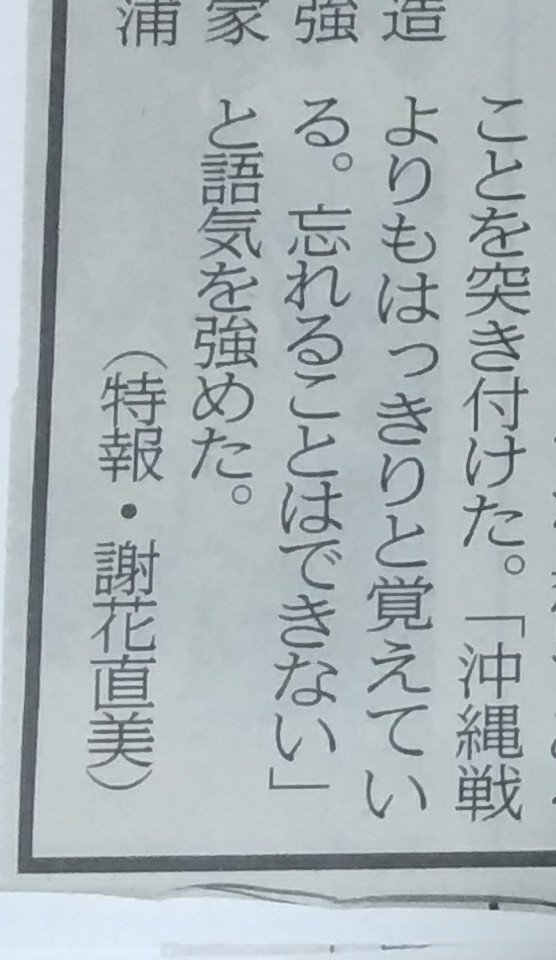 造
強
家
浦
ことを突き付けた。「沖縄戦
よりもはっきりと覚えてい
る。忘れることはできない」
と語気を強めた。
（特報・謝花直美）